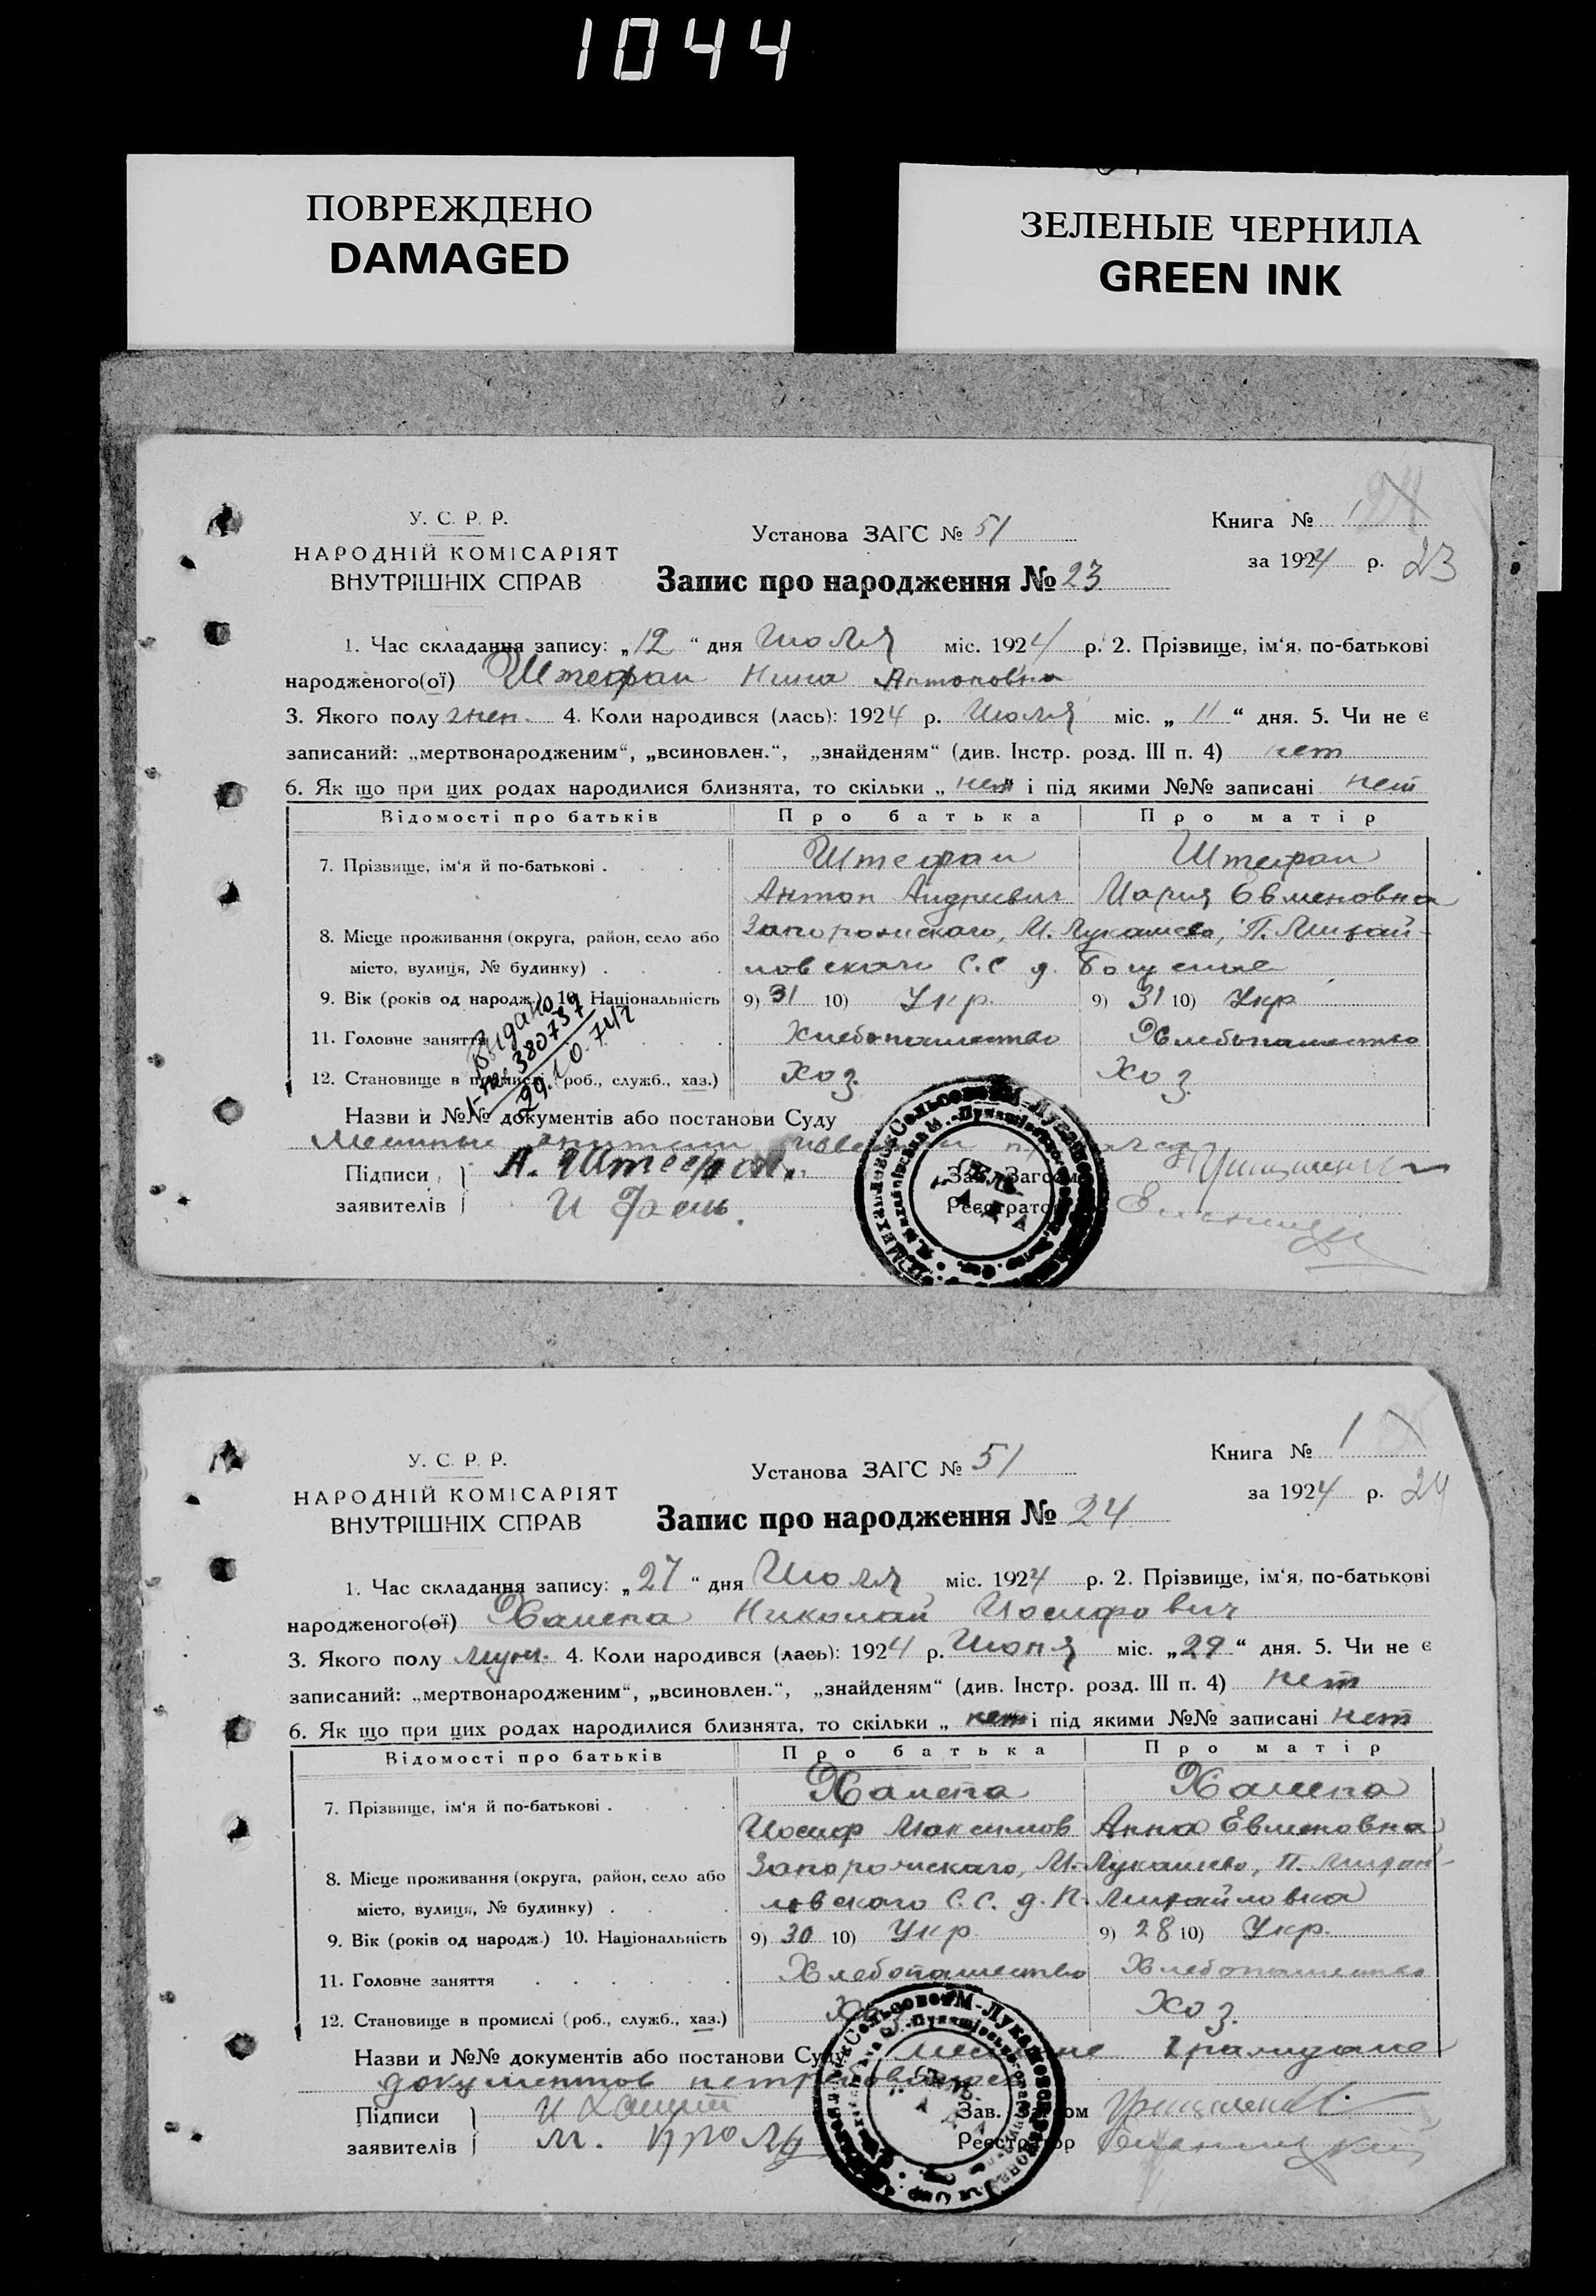 1044
ПОВРЕЖДЕНО
DAMAGED
ЗЕЛЕНЫЕ ЧЕРНИЛА
GREEN INK
У. С. Р. Р.
НАРОДНІЙ КОМІСАРІЯТ
ВНУТРІШНІХ СПРАВ
Установа ЗАГС № 51
Запис про народження № 23
Книга № 1
за 1924 р. 23
1. Час складання запису: „12“ дня Июля міс. 1924 р. 2. Прізвище, ім‘я, по-батькові
народженого(ої) Штефан Нина Антоновна
3. Якого полу жен. 4. Коли народився (лась): 1924 р. Июля міс. „11“ дня. 5. Чи не є
записаний: „мертвонародженим“, „всиновлен.“, „знайденям“ (див. Інстр. розд. III п. 4) нет
6. Як що при цих родах народилися близнята, то скільки „нет“ і під якими №№ записані нет
Відомості про батьків Про батька Про матір
7. Прізвище, ім‘я й по-батькові . Штефан Штефан
Антон Андреевич Мария Евменовна
8. Місце проживання (округа, район, село або Запорожскаго, М. Лукашево, П. Михай-
місто, вулиця, № будинку) . ловскаго С.С. д.
9. Вік (років од народж.) 10. Національність 9) 31 10) Укр. 9) 31 10) Укр.
11. Головне заняття Хлебопашество Хлебопашество
12. Становище в промислі (роб., служб., хаз.) Хоз. Хоз.
Видано
380737
29.10.74
Назви и №№ документів або постанови Суду
Местные
Підписи заявителів А. Штефан.
И
Зав. Загсом Грищенко
Реєстратор
У. С. Р. Р.
НАРОДНІЙ КОМІСАРІЯТ
ВНУТРІШНІХ СПРАВ
Установа ЗАГС № 51
Запис про народження № 24
Книга № 1
за 1924 р. 24
1. Час складання запису: „27“ дня Июля міс. 1924 р. 2. Прізвище, ім‘я, по-батькові
народженого(ої) Халепа Николай Иосифович
3. Якого полу муж. 4. Коли народився (лась): 1924 р. Июня міс. „29“ дня. 5. Чи не є
записаний: „мертвонародженим“, „всиновлен.“, „знайденям“ (див. Інстр. розд. III п. 4) нет
6. Як що при цих родах народилися близнята, то скільки „нет і під якими №№ записані нет
Відомості про батьків Про батька Про матір
7. Прізвище, ім‘я й по-батькові . Халепа Халепа
Иосиф Максимов Анна Евменовна
8. Місце проживання (округа, район, село або Запорожскаго, М. Лукашево, П. Михай-
місто, вулиця, № будинку) . ловскаго С.С. д. П. Михайловка
9. Вік (років од народж.) 10. Національність 9) 30 10) Укр. 9) 28 10) Укр.
11. Головне заняття Хлебопашество Хлебопашество
12. Становище в промислі (роб., служб., хаз.) Хоз. Хоз.
Назви и №№ документів або постанови Суду Местные граждане
документов
Підписи заявителів И
М. Кроль
Зав. Загсом Грищенко
Реєстратор